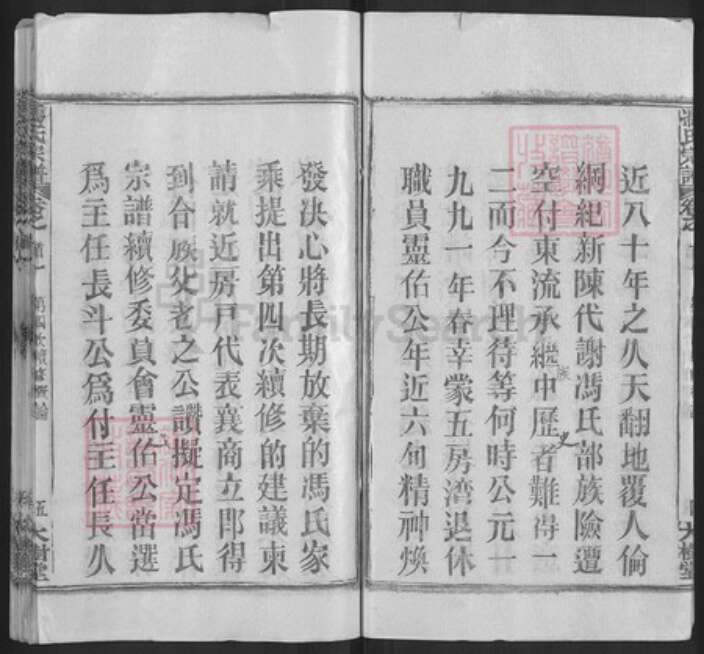 近八十年之久天翻地覆人倫
綱紀新陳代謝馮氏部族險遭
空付東流承繼中歷者難得一
族
史
二而今不理待等何時公元一
九九一年春幸蒙五房湾退休
職員靈佑公年近六旬精神煥
發决心將長期放棄的馮氏家
乘提出第四次續修的建議柬
請就近房戸代表襄商立即得
到合族父老之公讚擬定馮氏
宗譜續修委員會靈佑公當選
爲主任長斗公爲付主任長久
馮氏宗譜
卷之
首一
五
大樹堂
大樹堂
FamilySearch